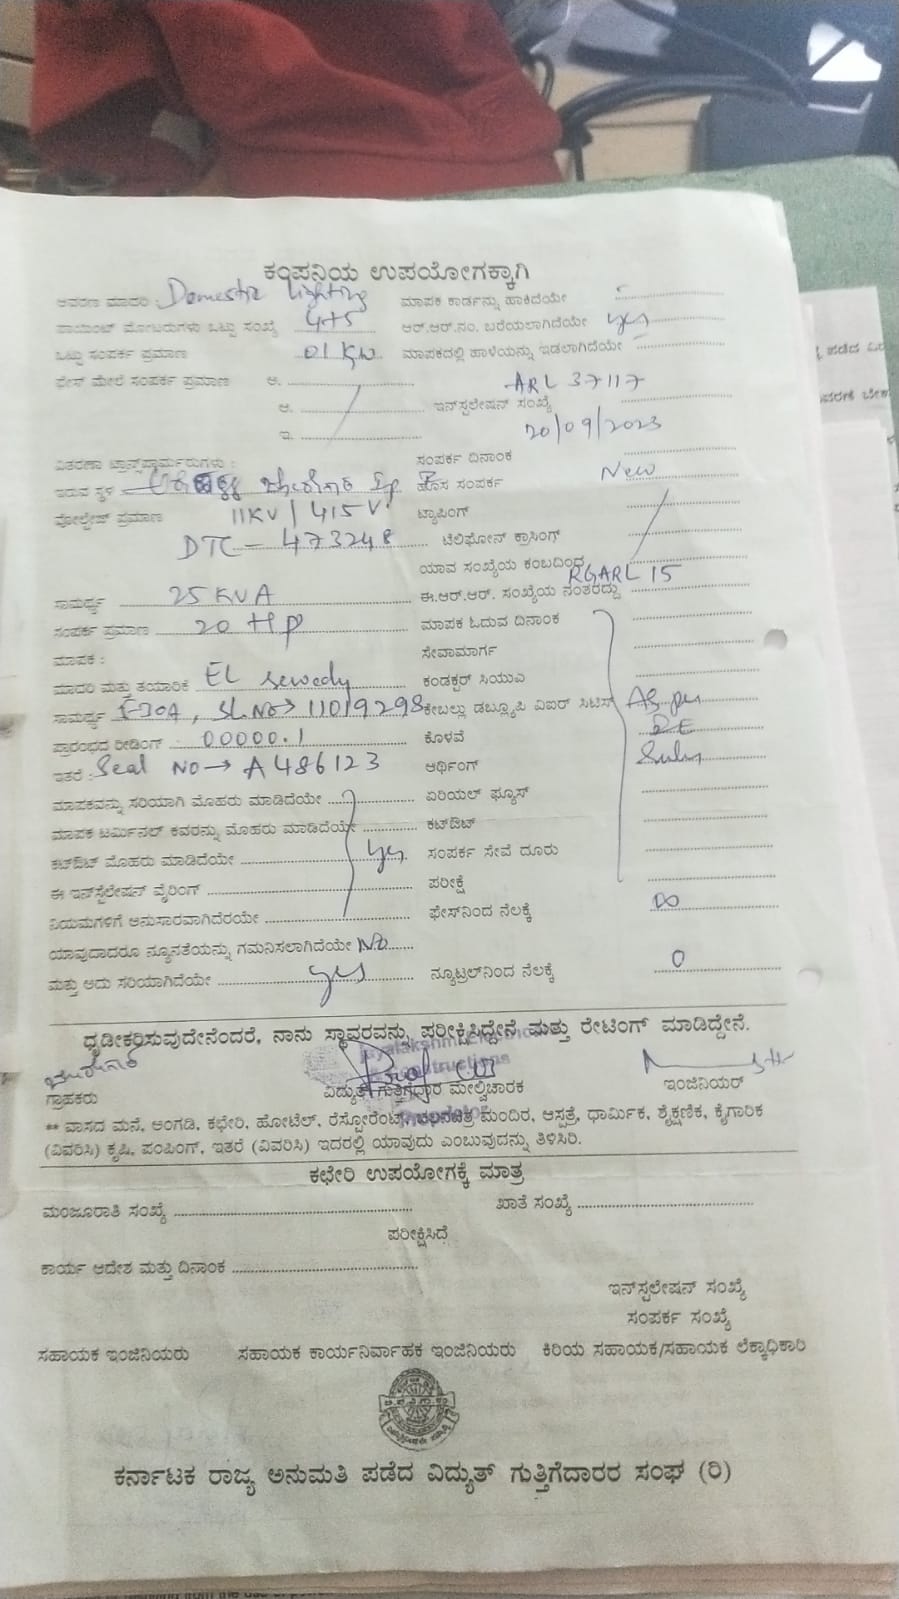 ಕಂಪನಿಯ ಉಪಯೋಗಕ್ಕಾಗಿ
ಆವರಣ ಮಾದರಿ : Domestic Lighting ಮಾಪಕ ಕಾರ್ಡನ್ನು ಹಾಕಿದೆಯೇ
ಪಾಯಿಂಟ್ ಮೋಟರುಗಳು ಒಟ್ಟು ಸಂಖ್ಯೆ 4+5 ಆರ್.ಆರ್.ನಂ. ಬರೆಯಲಾಗಿದೆಯೇ yes
ಒಟ್ಟು ಸಂಪರ್ಕ ಪ್ರಮಾಣ 01 KW ಮಾಪಕದಲ್ಲಿ ಹಾಳೆಯನ್ನು ಇಡಲಾಗಿದೆಯೇ
ಫೇಸ್ ಮೇಲೆ ಸಂಪರ್ಕ ಪ್ರಮಾಣ ಅ. ARL 37117
ಆ. ಇನ್‌ಸ್ಟಲೇಷನ್ ಸಂಖ್ಯೆ
ಇ. 20/09/2023
ವಿತರಣಾ ಟ್ರಾನ್ಸ್‌ಫಾರ್ಮರುಗಳು : ಸಂಪರ್ಕ ದಿನಾಂಕ
ಇರುವ ಸ್ಥಳ ಹೊಸ ಸಂಪರ್ಕ New
ವೋಲ್ಟೇಜ್ ಪ್ರಮಾಣ 11KV / 415 V ಟ್ಯಾಪಿಂಗ್
DTC - 473248 ಟೆಲಿಫೋನ್ ಕ್ರಾಸಿಂಗ್
ಯಾವ ಸಂಖ್ಯೆಯ ಕಂಬದಿಂದ RGARL 15
ಸಾಮರ್ಥ್ಯ 25 KVA ಈ.ಆರ್.ಆರ್. ಸಂಖ್ಯೆಯ ನಂತರದ್ದು
ಸಂಪರ್ಕ ಪ್ರಮಾಣ 20 HP ಮಾಪಕ ಓದುವ ದಿನಾಂಕ
ಮಾಪಕ : ಸೇವಾಮಾರ್ಗ
ಮಾದರಿ ಮತ್ತು ತಯಾರಿಕೆ EL sewedy ಕಂಡಕ್ಟರ್ ಸಿಯುವಿ
ಸಾಮರ್ಥ್ಯ 5-30A, SL.No→ 11019298 ಕೇಬಲ್ಲು ಡಬ್ಲ್ಯೂಪಿ ವಿಐಆರ್ ಸಿಟಿಸ್ As per
ಪ್ರಾರಂಭದ ರೀಡಿಂಗ್ 00000.1 ಕೊಳವೆ
ಇತರೆ : Seal NO→ A 486123 ಅರ್ಥಿಂಗ್
ಮಾಪಕವನ್ನು ಸರಿಯಾಗಿ ಮೊಹರು ಮಾಡಿದೆಯೇ ಏರಿಯಲ್ ಫ್ಯೂಸ್
ಮಾಪಕ ಟರ್ಮಿನಲ್ ಕವರನ್ನು ಮೊಹರು ಮಾಡಿದೆಯೇ ಕಟ್‌ಔಟ್
ಕಟ್‌ಔಟ್ ಮೊಹರು ಮಾಡಿದೆಯೇ yes ಸಂಪರ್ಕ ಸೇವೆ ದೂರು
ಈ ಇನ್‌ಸ್ಟಲೇಷನ್ ವೈರಿಂಗ್ ಪರೀಕ್ಷೆ
ನಿಯಮಗಳಿಗೆ ಅನುಸಾರವಾಗಿದೆರಯೇ ಫೇಸ್‌ನಿಂದ ನೆಲಕ್ಕೆ ∞
ಯಾವುದಾದರೂ ನ್ಯೂನತೆಯನ್ನು ಗಮನಿಸಲಾಗಿದೆಯೇ No
ಮತ್ತು ಅದು ಸರಿಯಾಗಿದೆಯೇ yes ನ್ಯೂಟ್ರಲ್‌ನಿಂದ ನೆಲಕ್ಕೆ 0
ಧೃಡೀಕರಿಸುವುದೇನೆಂದರೆ, ನಾನು ಸ್ಥಾವರವನ್ನು ಪರೀಕ್ಷಿಸಿದ್ದೇನೆ ಮತ್ತು ರೇಟಿಂಗ್ ಮಾಡಿದ್ದೇನೆ.
ಗ್ರಾಹಕರು ವಿದ್ಯುತ್ ಗುತ್ತಿಗೆದಾರ ಮೇಲ್ವಿಚಾರಕ ಇಂಜಿನಿಯರ್
** ವಾಸದ ಮನೆ, ಅಂಗಡಿ, ಕಛೇರಿ, ಹೋಟೆಲ್, ರೆಸ್ಟೋರೆಂಟ್, ಚಲನಚಿತ್ರ ಮಂದಿರ, ಆಸ್ಪತ್ರೆ, ಧಾರ್ಮಿಕ, ಶೈಕ್ಷಣಿಕ, ಕೈಗಾರಿಕ
(ವಿವರಿಸಿ) ಕೃಷಿ, ಪಂಪಿಂಗ್, ಇತರೆ (ವಿವರಿಸಿ) ಇದರಲ್ಲಿ ಯಾವುದು ಎಂಬುವುದನ್ನು ತಿಳಿಸಿರಿ.
ಕಛೇರಿ ಉಪಯೋಗಕ್ಕೆ ಮಾತ್ರ
ಮಂಜೂರಾತಿ ಸಂಖ್ಯೆ ಖಾತೆ ಸಂಖ್ಯೆ
ಪರೀಕ್ಷಿಸಿದೆ
ಕಾರ್ಯ ಆದೇಶ ಮತ್ತು ದಿನಾಂಕ
ಇನ್‌ಸ್ಟಲೇಷನ್ ಸಂಖ್ಯೆ
ಸಂಪರ್ಕ ಸಂಖ್ಯೆ
ಸಹಾಯಕ ಇಂಜಿನಿಯರು ಸಹಾಯಕ ಕಾರ್ಯನಿರ್ವಾಹಕ ಇಂಜಿನಿಯರು ಕಿರಿಯ ಸಹಾಯಕ/ಸಹಾಯಕ ಲೆಕ್ಕಾಧಿಕಾರಿ
ಕರ್ನಾಟಕ ರಾಜ್ಯ ಅನುಮತಿ ಪಡೆದ ವಿದ್ಯುತ್ ಗುತ್ತಿಗೆದಾರರ ಸಂಘ (ರಿ)